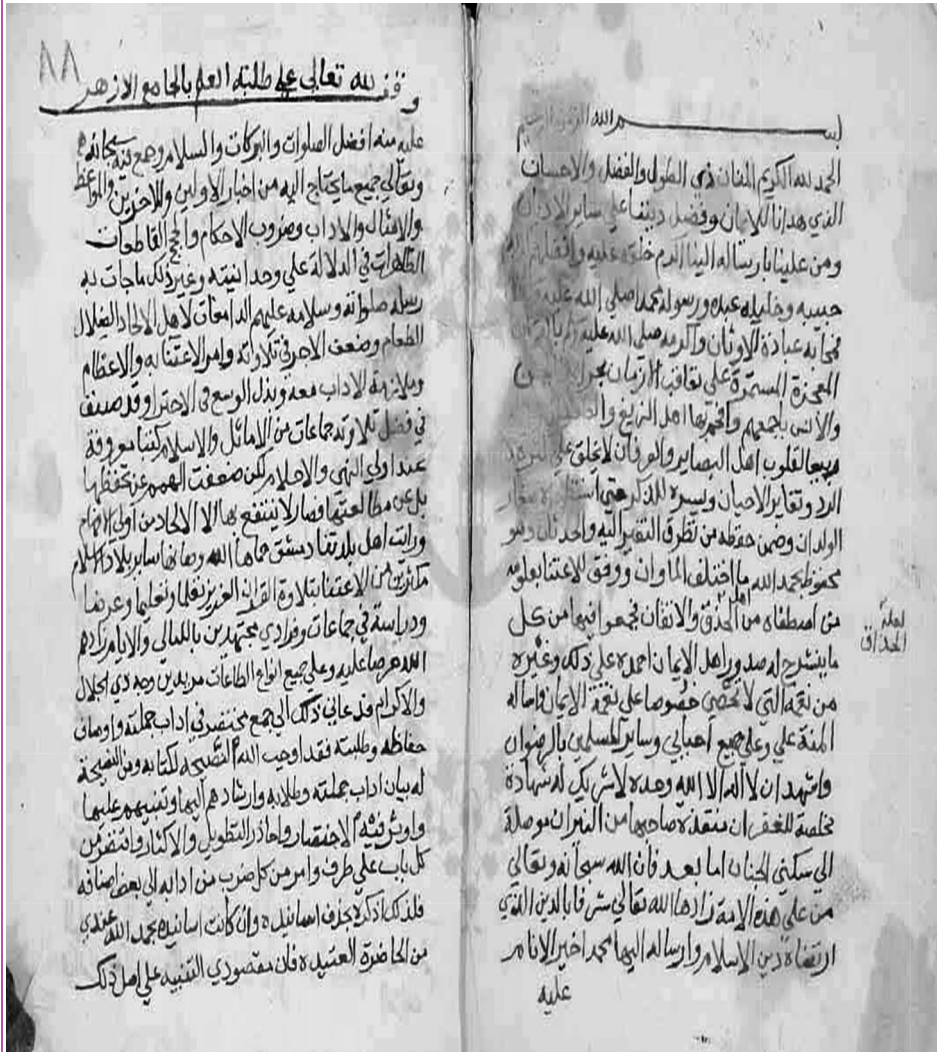 بسم الله الرحمن الرحيم
الحمد لله الكريم المنان ذي الطول والفضل والاحسان
الذي هدانا للايمان وفضل ديننا علي ساير الاديان
ومن علينا بارساله الينا اكرم خلقه عليه وافضلهم
حبيبه وخليله عبده ورسوله محمد صلي الله عليه
فمحا به عبادة الاوثان واكرمه صلي الله عليه
المعجزة المستمرة علي تعاقب الازمان
والانس باجمعهم وافحم بها اهل الزيغ
ربيعا لقلوب اهل البصاير والعرفان لا يخلق علي
الرد وتغاير الاحيان ويسره للذكر حتي استظهره صغار
الولدان وضمن حفظه من تطرق التغير اليه والحدثان وهو
محفوظ بحمد الله ما اختلف الملوان ووفق للاعتنا بعلومه
من اصطفاه من اهل الحذق والاتقان فجمعوا فيها من كل
ما ينشرح له صدور اهل الايمان احمده علي ذلك وغيره
من نعمه التي لا تحصي خصوصا علي نعمة الايمان واساله
المنة علي وعلي جميع احبابي وساير المسلمين بالرضوان
واشهد ان لا اله الا الله وحده لا شريك له شهادة
مخلصة للغفران منقذة صاحبها من النيران موصلة
الي سكني الجنان اما بعد فان الله سبحانه وتعالي
من علي هذه الامة زادها الله تعالي شرفا بالدين الذي
ارتضاه دين الاسلام وارساله اليها محمدا خير الانام
عليه
لعله
الحذاق
٨٨
وقف لله تعالي علي طلبة العلم بالجامع الازهر
عليه منه افضل الصلوات والبركات والسلام وجمع فيه سبحانه
وتعالي جميع ما يحتاج اليه من اخبار الاولين والاخرين والمواعظ
والامثال والاداب وضروب الاحكام والحجج القاطعات
الظاهرات في الدلالة علي وحدانيته وغير ذلك ما جات به
رسله صلواته وسلامه عليهم الدامغات لاهل الالحاد الضلال
الطغام وضعف الاجر في تلاوته وامر الاعتنا به والاعظام
وملازمة الاداب معه وبذل الوسع في الاحترا وقد صنف
في فضل تلاوته جماعات من الاماثل والاسلام كتبا معروفة
عند اولي النهي والاحلام لكن ضعفت الهمم عن تحفظها
بل عن مطالعتها فصار لا ينتفع بها الا الاحاد من اولي الافهام
ورايت اهل بلدتنا دمشق حماها الله وصانها وساير بلاد الاسلام
مكثرين من الاعتنا بتلاوة القران العزيز تعلما وتعليما وعرضا
ودراسة في جماعات وفرادي مجتهدين بالليالي والايام زادهم
الله حرصا عليه وعلي جميع انواع الطاعات مريدين وجه ذي الجلال
والاكرام فدعاني ذلك الي جمع مختصر في اداب حملته واوصاف
حفاظه وطلبته فقد اوجب الله النصيحة لكتابه ومن النصيحة
له بيان اداب حملته وطلابه وارشادهم اليها وتنبيههم عليها
واوثر فيه الاختصار واحاذر التطويل والاكثار واقتصر من
كل باب علي طرف وامر من كل ضرب من ادابه الي بعض اصنافه
فلذلك اذكره بحذف اسانيده وان كانت اسانيده بحمد الله عندي
من الحاضرة العتيده فان مقصودي التنبيه علي اهل ذلك